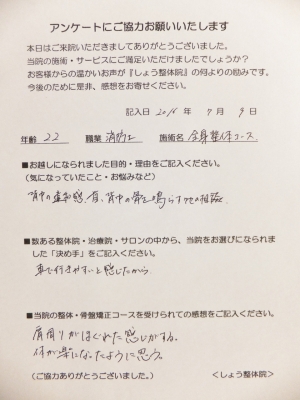 アンケートにご協力お願いいたします
本日はご来院いただきましてありがとうございました。
当院の施術・サービスにご満足いただけましたでしょうか？
お客様からの温かいお声が『しょう整体院』の何よりの励みです。
今後のために是非、感想をお寄せください。
記入日 2016 年 7 月 9 日
年齢 22 職業 消防士 施術名 全身整体コース
■お越しになられました目的・理由をご記入ください。
（気になっていたこと・お悩みなど）
背中の違和感、肩、背中の骨を鳴らす
■数ある整体院・治療院・サロンの中から、当院をお選びになられま
した「決め手」をご記入ください。
車で行きやすいと感じたから
■当院の整体・骨盤矯正コースを受けられての感想をご記入ください。
肩周りがほぐれた感じがする。
体が楽になったように思う。
（ご協力ありがとうございました。） ＜しょう整体院＞